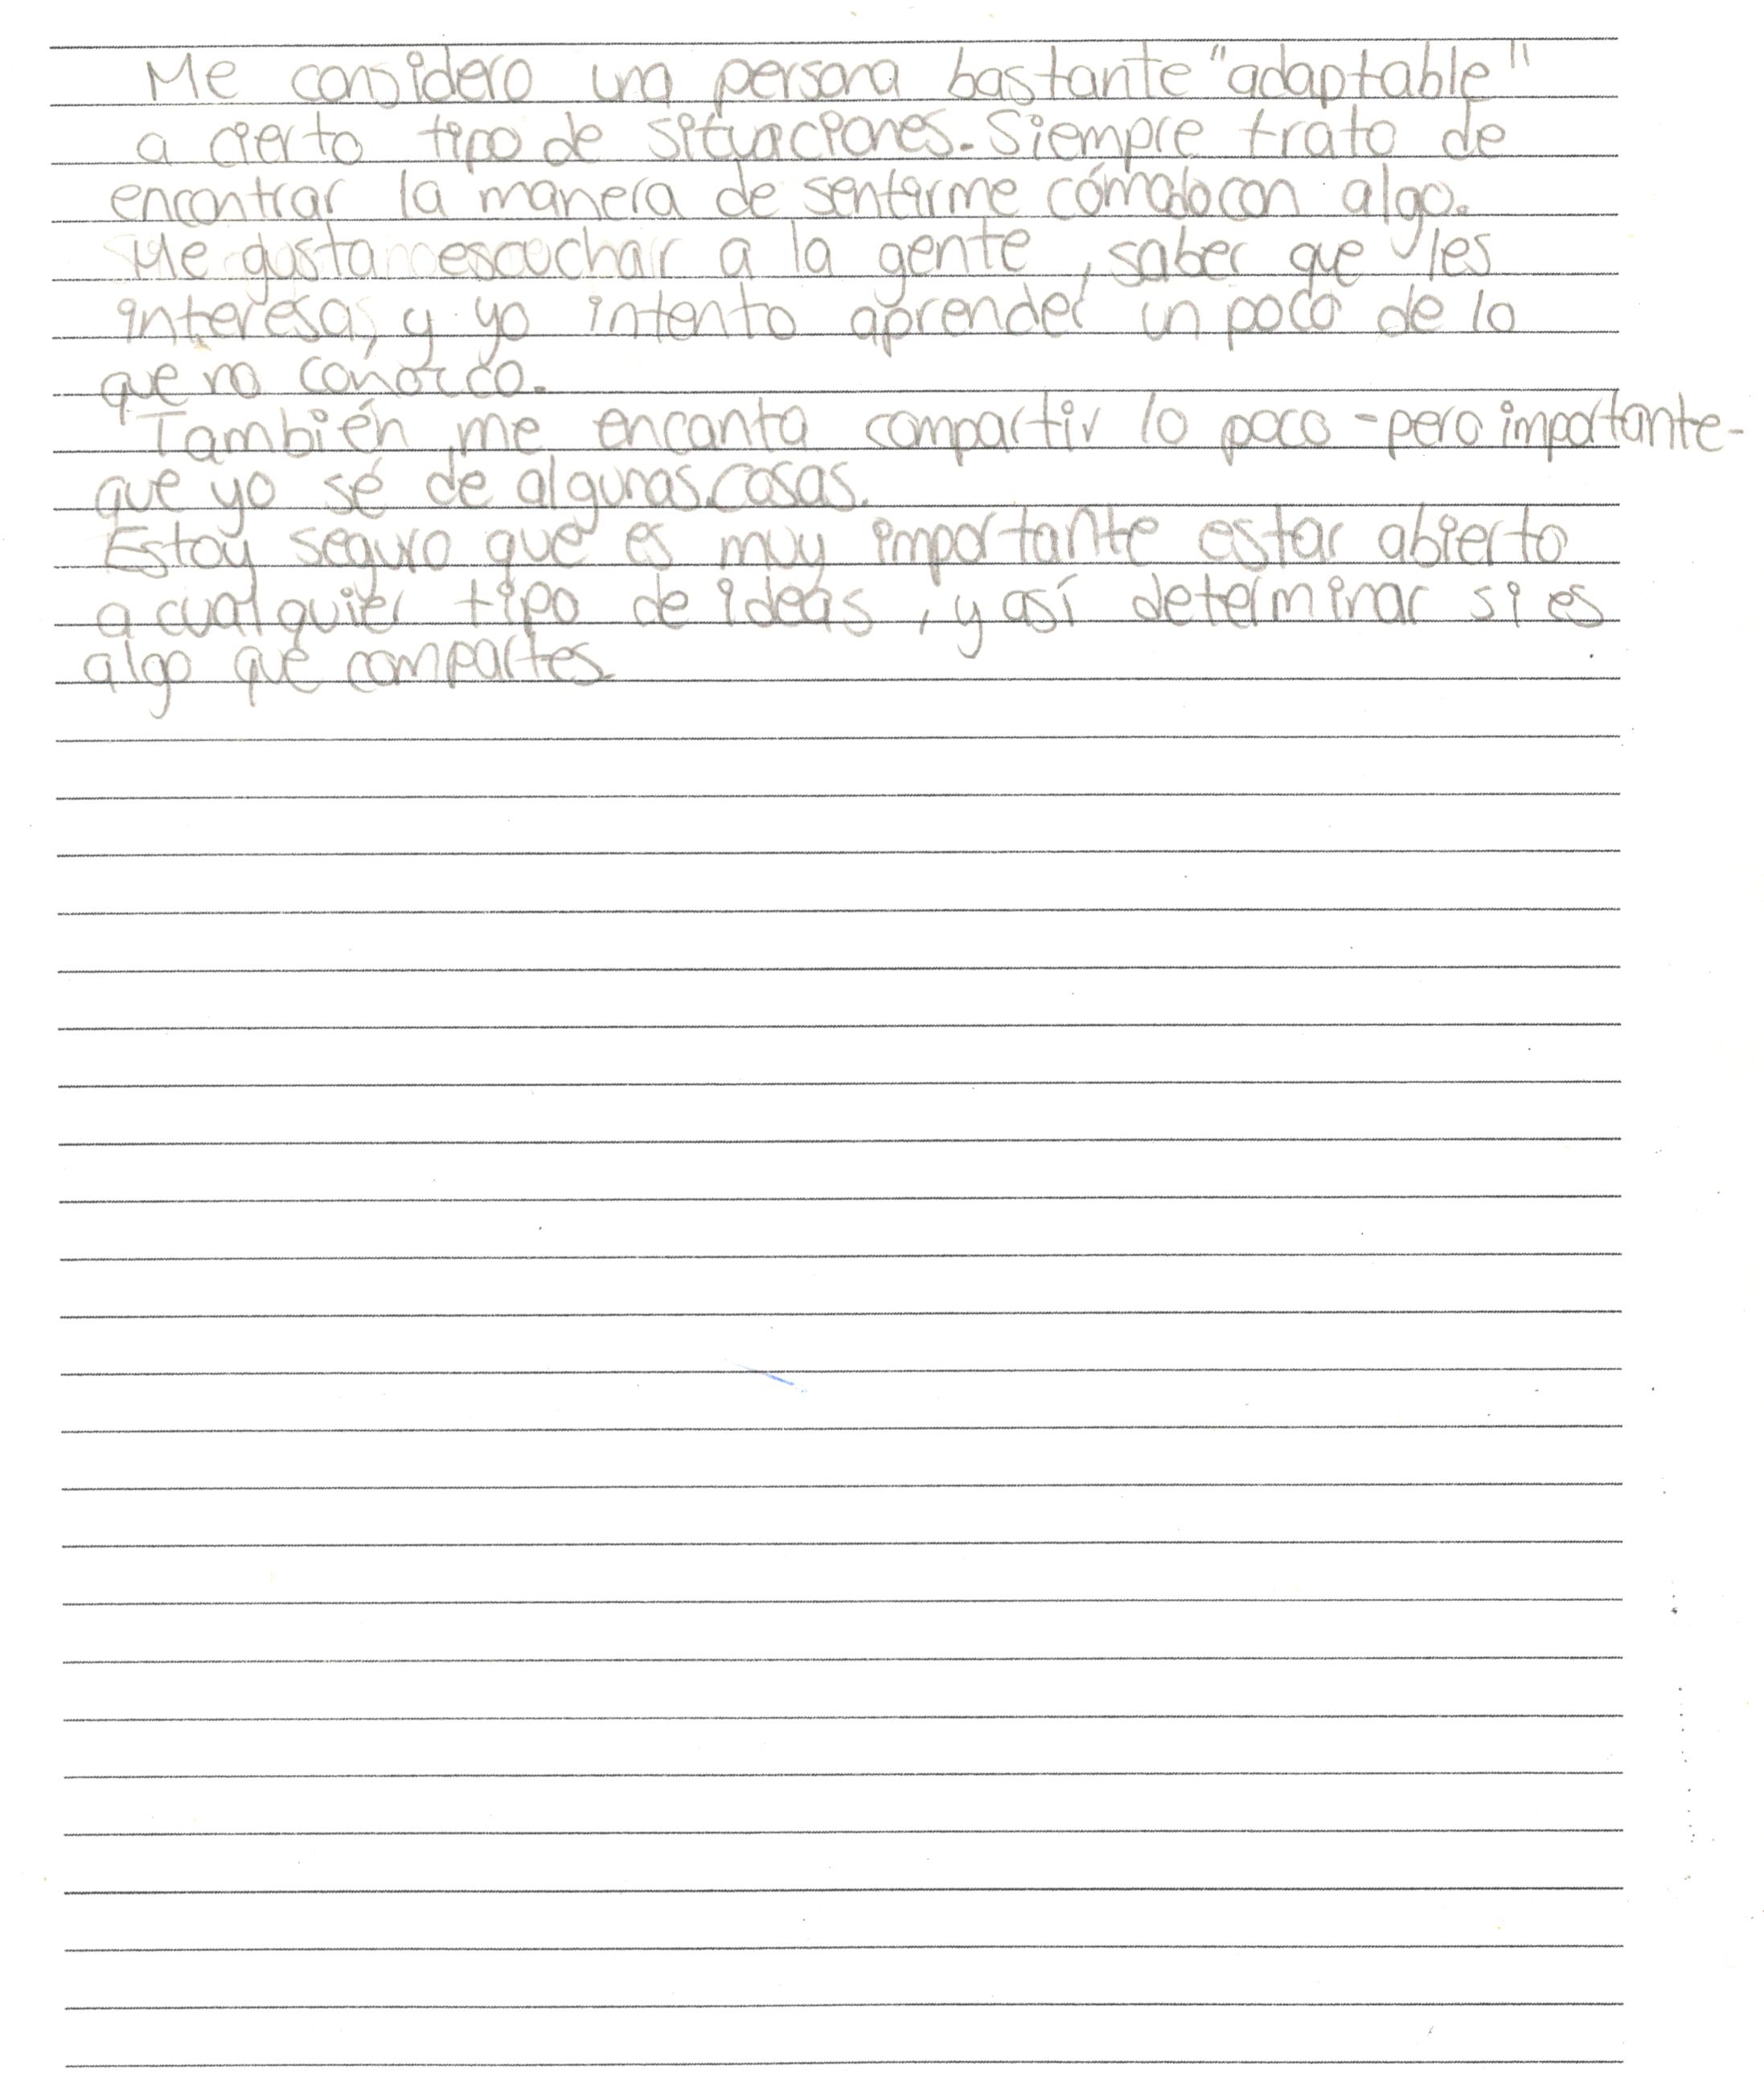 Me considero una persona bastante "adaptable"
a cierto tipo de situaciones. Siempre trato de
encontrar la manera de sentirme cómodo con algo.
Me gusta escuchar a la gente, saber que les
interesa, y yo intento aprender un poco de lo
que no conozco.
También me encanta compartir lo poco -pero importante-
que yo sé de algunas cosas.
Estoy seguro que es muy importante estar abierto
a cualquier tipo de ideas, y así determinar si es
algo que compartes